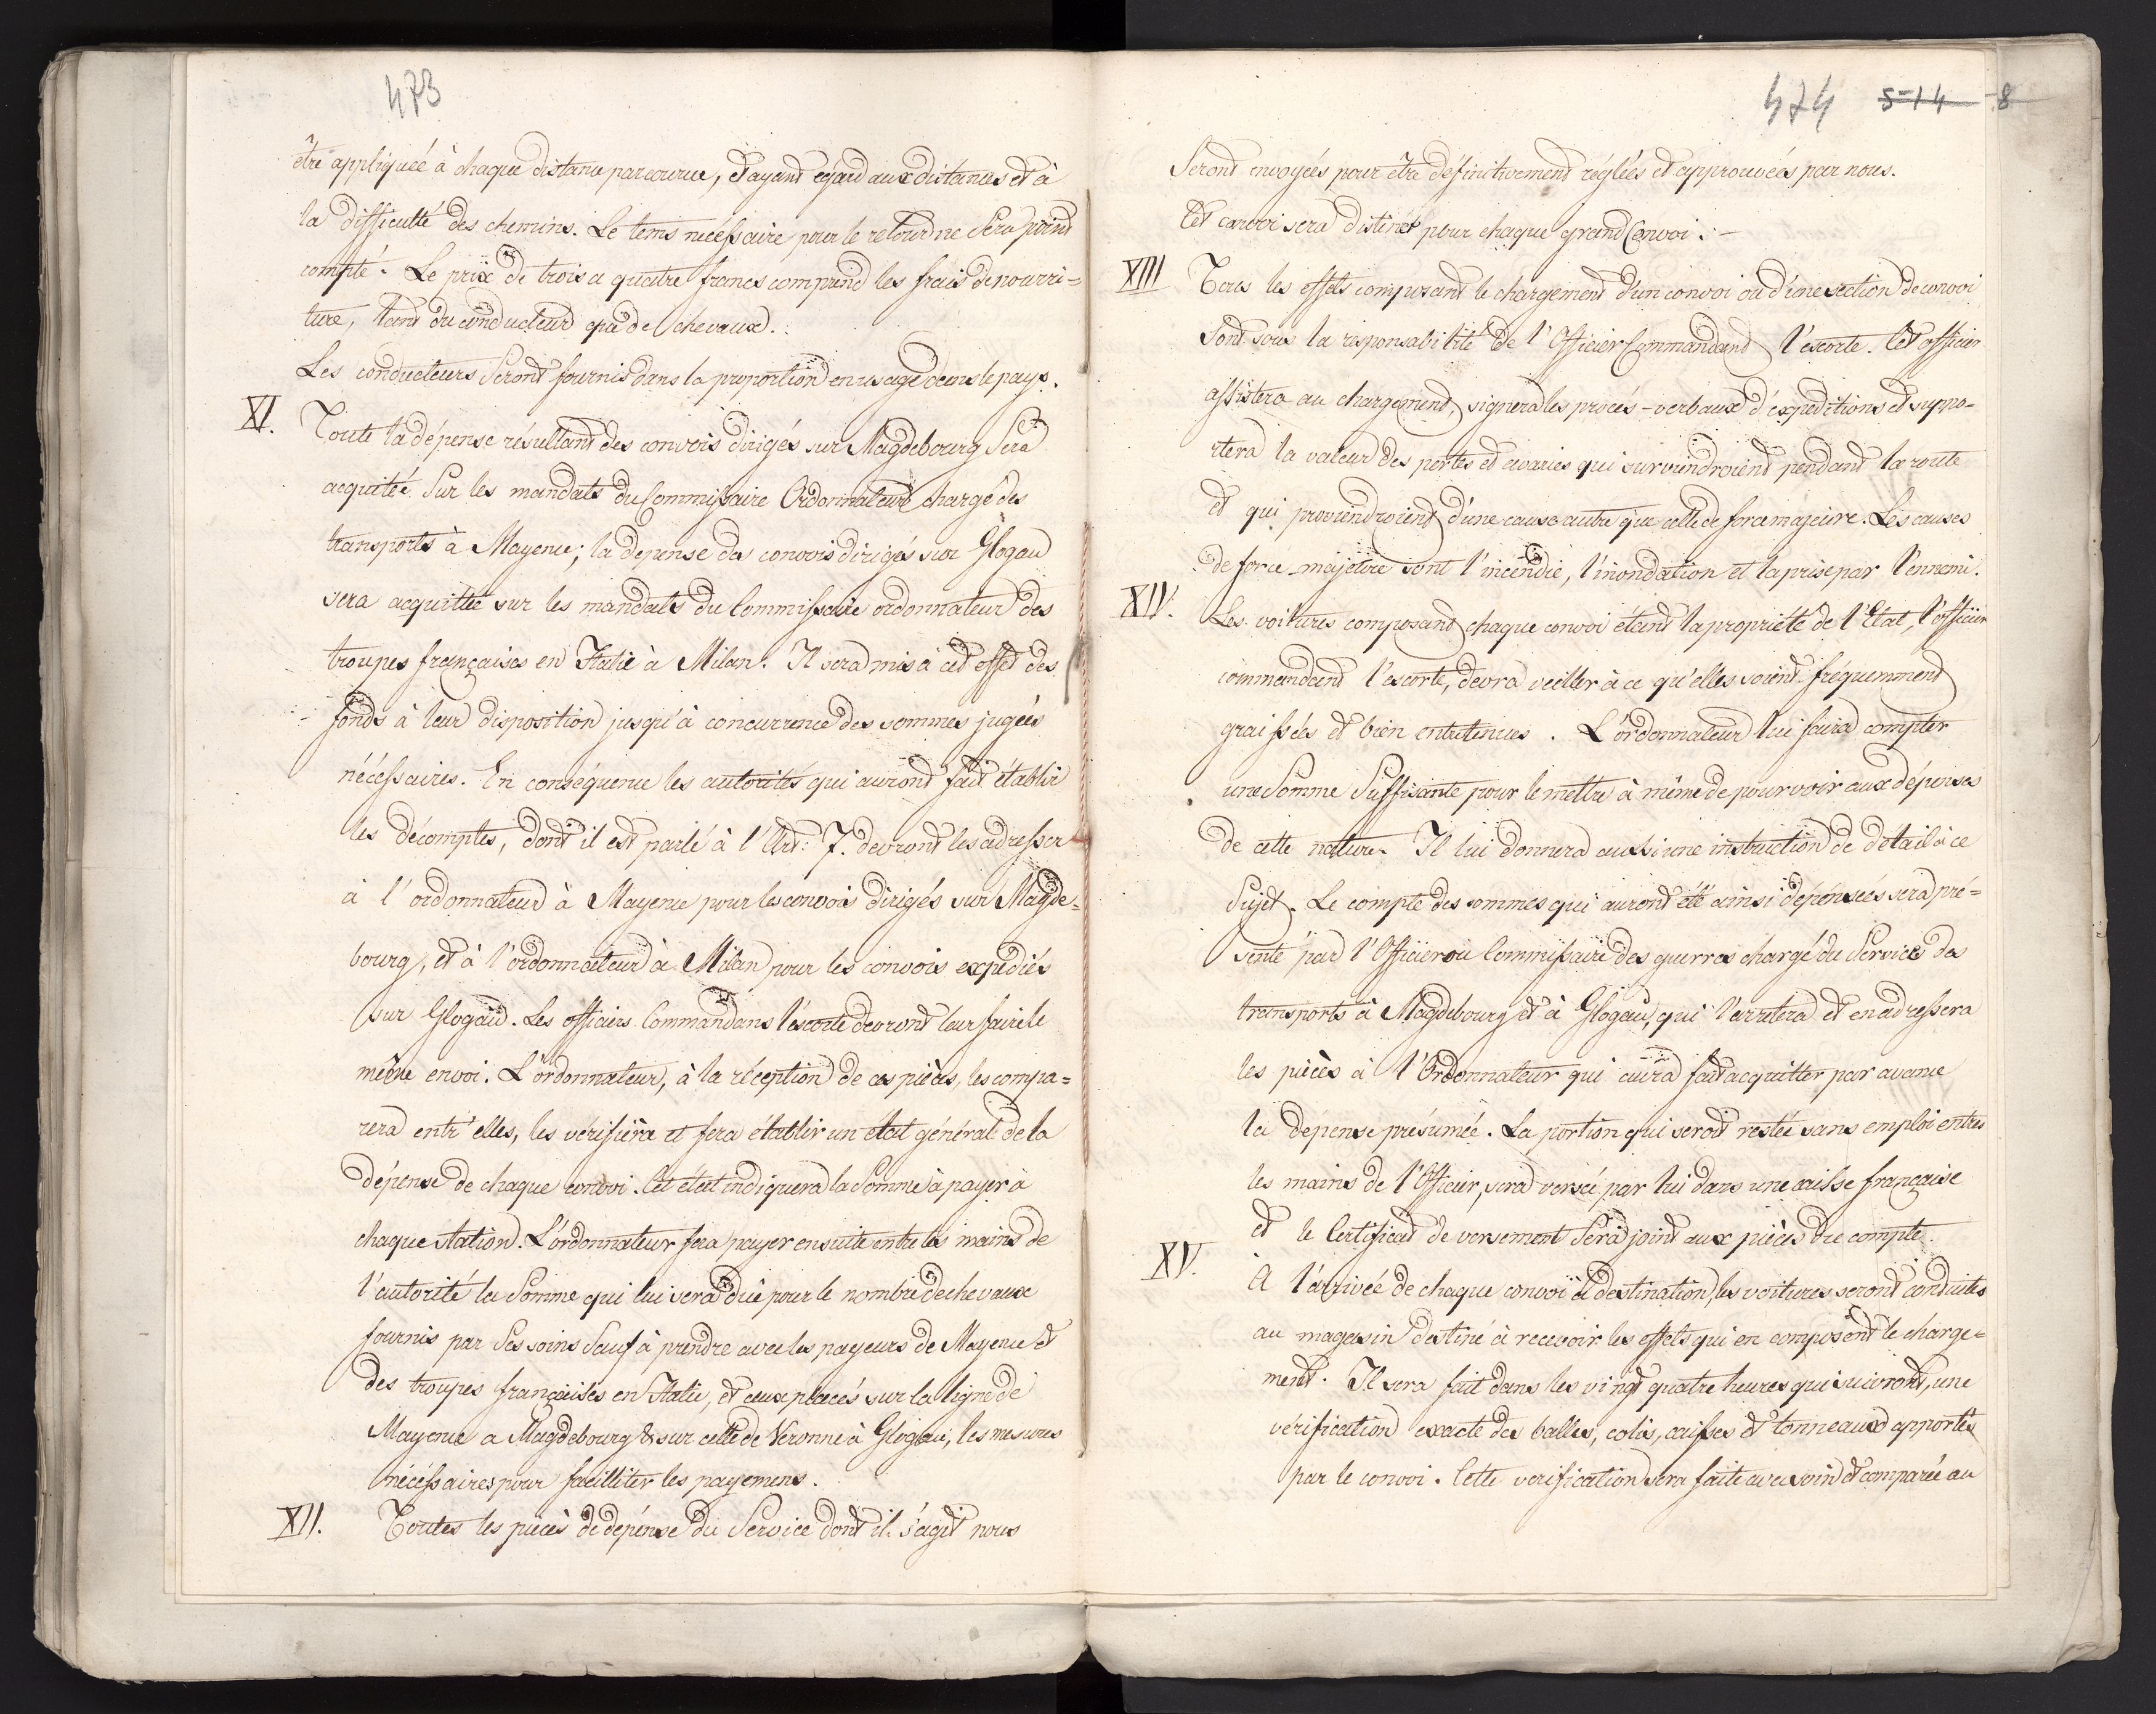 473
être appliquée à chaque distance parcourue, et ayant égard aux distances et à
la difficulté des chemins. Le tems nécessaire pour le retour ne sera point
compté. Le prix de trois a quatre francs comprend les frais de nourri=
ture, tant du conducteur que de chevaux.
Les conducteurs seront fournis dans la proportion en usage dans le pays.
XI. Toute la dépense résultant des convois dirigés sur Magdebourg sera
acquitée sur les mandats du Commissaire Ordonnateur chargé des
transports à Mayence; la depense des convois dirigés sur Glogau
sera acquittée sur les mandats du Commissaire ordonnateur des
troupes françaises en Italie à Milan. Il sera mis à cet effet des
fonds à leur disposition jusqu'à concurrence des sommes jugées
nécessaires. En conséquence les autorités qui auront fait établir
les décomptes, dont il est parlé à l'Art: 7. devront les adresser
à l'ordonnateur à Mayence pour les convois dirigés sur Magde=
bourg, et à l'ordonnateur à Milan pour les convois expédiés
sur Glogau. Les officiers Commandans l'escorte devront leur faire le
même envoi. L'ordonnateur, à la réception de ces pièces, les compa=
rera entr'elles, les vérifiera et fera établir un état général de la
dépense de chaque convoi. Cet état indiquera la Somme à payer à
chaque station. L'ordonnateur fera payer ensuite entre les mains de
l'autorité la Somme qui lui sera dûe pour le nombre de chevaux
fournis par ses soins sauf à prendre avec les payeurs de Mayence et
des troupes françaises en Italie, et ceux placés sur la ligne de
Mayence a Magdebourg & sur celle de Veronne à Glogau, les mesures
nécessaires pour facilliter les payemens.
XII. Toutes les pièces de dépense du Service dont il s'agit nous
474 5-14 8
Seront envoyées pour être définitivement réglées et approuvées par nous.
Cet convoi sera distinct pour chaque grand Convoi. -
XIII Tous les effets composant le chargement d'un convoi ou d'une section de convoi
sont sous la responsabilité de l'Officier Commandant l'escorte. Cet officier
assistera au chargement, signera les procés-verbaux d'expeditions et suppo-
rtera la valeur des pertes et avaries qui surviendroient pendant la route
et qui proviendroient d'une cause autre que celle de force majeure. Les causes
de force-majeure sont l'incendie, l'inondation et la prise par l'ennemi.
XIV. Les voitures composant chaque convoi étant la propriété de l'Etat, l'officier
commandant l'escorte, devra veiller à ce qu'elles soient fréquemment
graissées et bien entretenues. L'ordonnateur lui faira compter
une Somme Suffisante pour le mettre à même de pourvoir aux dépenses
de cette nature. Il lui donnera aussi une instruction de détail à ce
Sujet. Le compte des sommes qui auront été ainsi dépensées sera pré=
senté par l'Officier au Commissaire des guerres chargé du Service des
transports à Magdebourg et à Glogau, qui l'arretera et en adressera
les pièces à l'Ordonnateur qui aura fait acquitter par avance
la dépense présumée. La portion qui seroit restée sans emploi entre
les mains de l'Officier, sera versée par lui dans une caisse française
et le Certificat de versement Sera joint aux pièces de compte.
XV. A l'arrivée de chaque convoi à destination, les voitures seront conduites
au magasin destiné à recevoir les effets qui en composent le charge=
ment. Il sera fait dans les vingt quatre heures qui suivront, une
vérification exacte des balles, colis, caisses et tonneaux apportés
par le convoi. Cette verification sera faite avec soin et comparée au